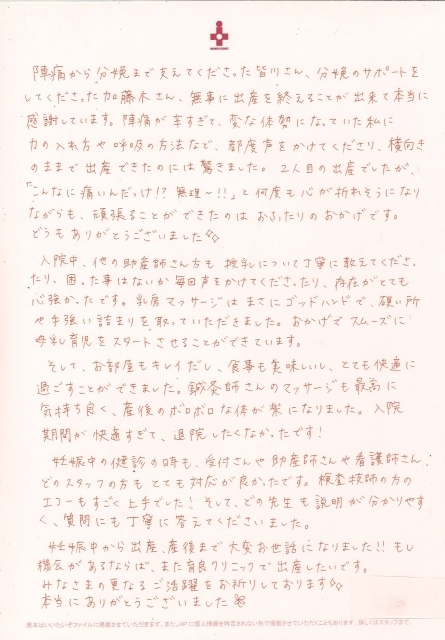 陣痛から分娩まで支えてくださった皆川さん、分娩のサポートを
してくださった加藤木さん、無事に出産を終えることが出来て本当に
感謝しています。陣痛が辛すぎて、変な体勢になっていた私に
力の入れ方や呼吸の方法など、都度声をかけてくださり、横向き
のままで出産できたのには驚きました。2人目の出産でしたが、
「こんなに痛いんだっけ!?無理〜!!」と何度も心が折れそうになり
ながらも、頑張ることができたのはお2人のおかげです。
どうもありがとうございました
入院中、他の助産師さん方も授乳について丁寧に教えてくださっ
たり、困った事はないか毎回声をかけてくださったり、存在がとても
心強かったです。乳房マッサージはまさにゴッドハンドで、硬い所
や手強い詰まりを取っていただきました。おかげでスムーズに
母乳育児をスタートさせることができています。
そして、お部屋もキレイだし、食事も美味しいし、とても快適に
過ごすことができました。鍼灸師さんのマッサージも最高に
気持ち良く、産後のボロボロな体が楽になりました。入院
期間が快適すぎて、退院したくなかったです!
妊娠中の健診の時も、受付さんや助産師さんや看護師さん、
どのスタッフの方もとても対応が良かったです。検査技師の方の
エコーもすごく上手でした!そして、どの先生も説明が分かりやす
く、質問にも丁寧に答えてくださいました。
妊娠中から出産、産後まで大変お世話になりました!!もし
機会があるならば、また育良クリニックで出産したいです。
みなさまの更なるご活躍をお祈りしております
本当にありがとうございました